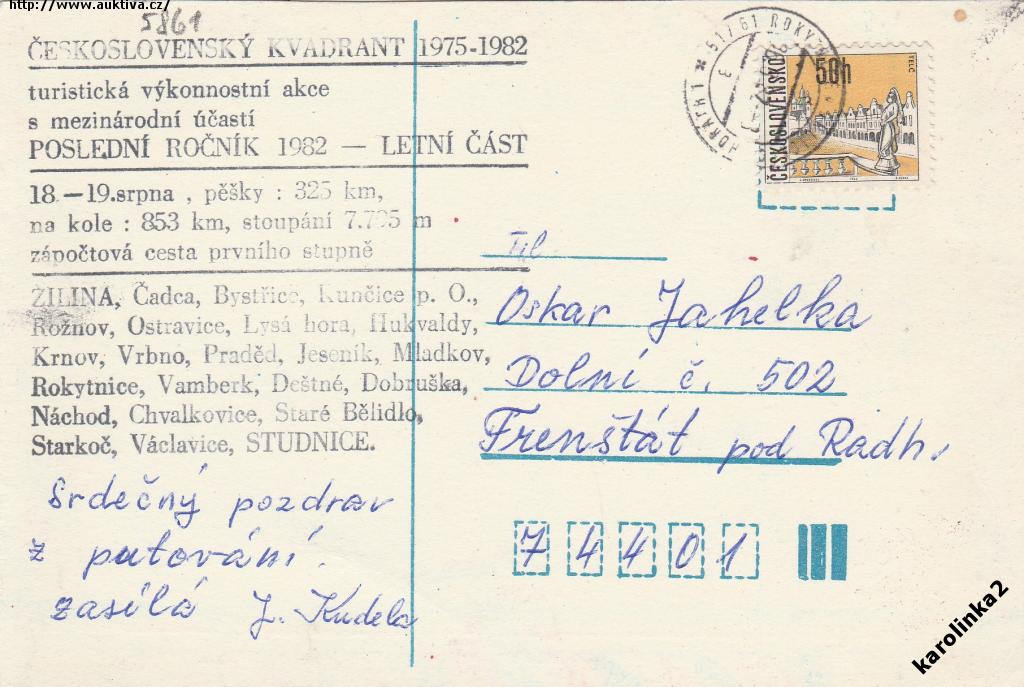 http://www.auktiva.cz/
5861
ČESKOSLOVENSKÝ KVADRANT 1975-1982
turistická výkonnostní akce
s mezinárodní účastí
POSLEDNÍ ROČNÍK 1982 — LETNÍ ČÁST
18.—19.srpna , pěšky : 325 km,
na kole : 853 km, stoupání 7.795 m
zápočtová cesta prvního stupně
ŽILINA, Čadca, Bystřice, Kunčice p. O.,
Rožnov, Ostravice, Lysá hora, Hukvaldy,
Krnov, Vrbno, Praděd, Jeseník, Mladkov,
Rokytnice, Vamberk, Deštné, Dobruška,
Náchod, Chvalkovice, Staré Bělidlo,
Starkoč, Václavice, STUDNICE.
Srdečný pozdrav
z putování.
zasílá J. Kudela
517 61 ROKY
HORÁCH 1
ČESKOSLOVENSKO
50h
TELČ
Oskar Jahelka
Dolní č. 502
Frenštát pod Radh.
74401
karolinka2